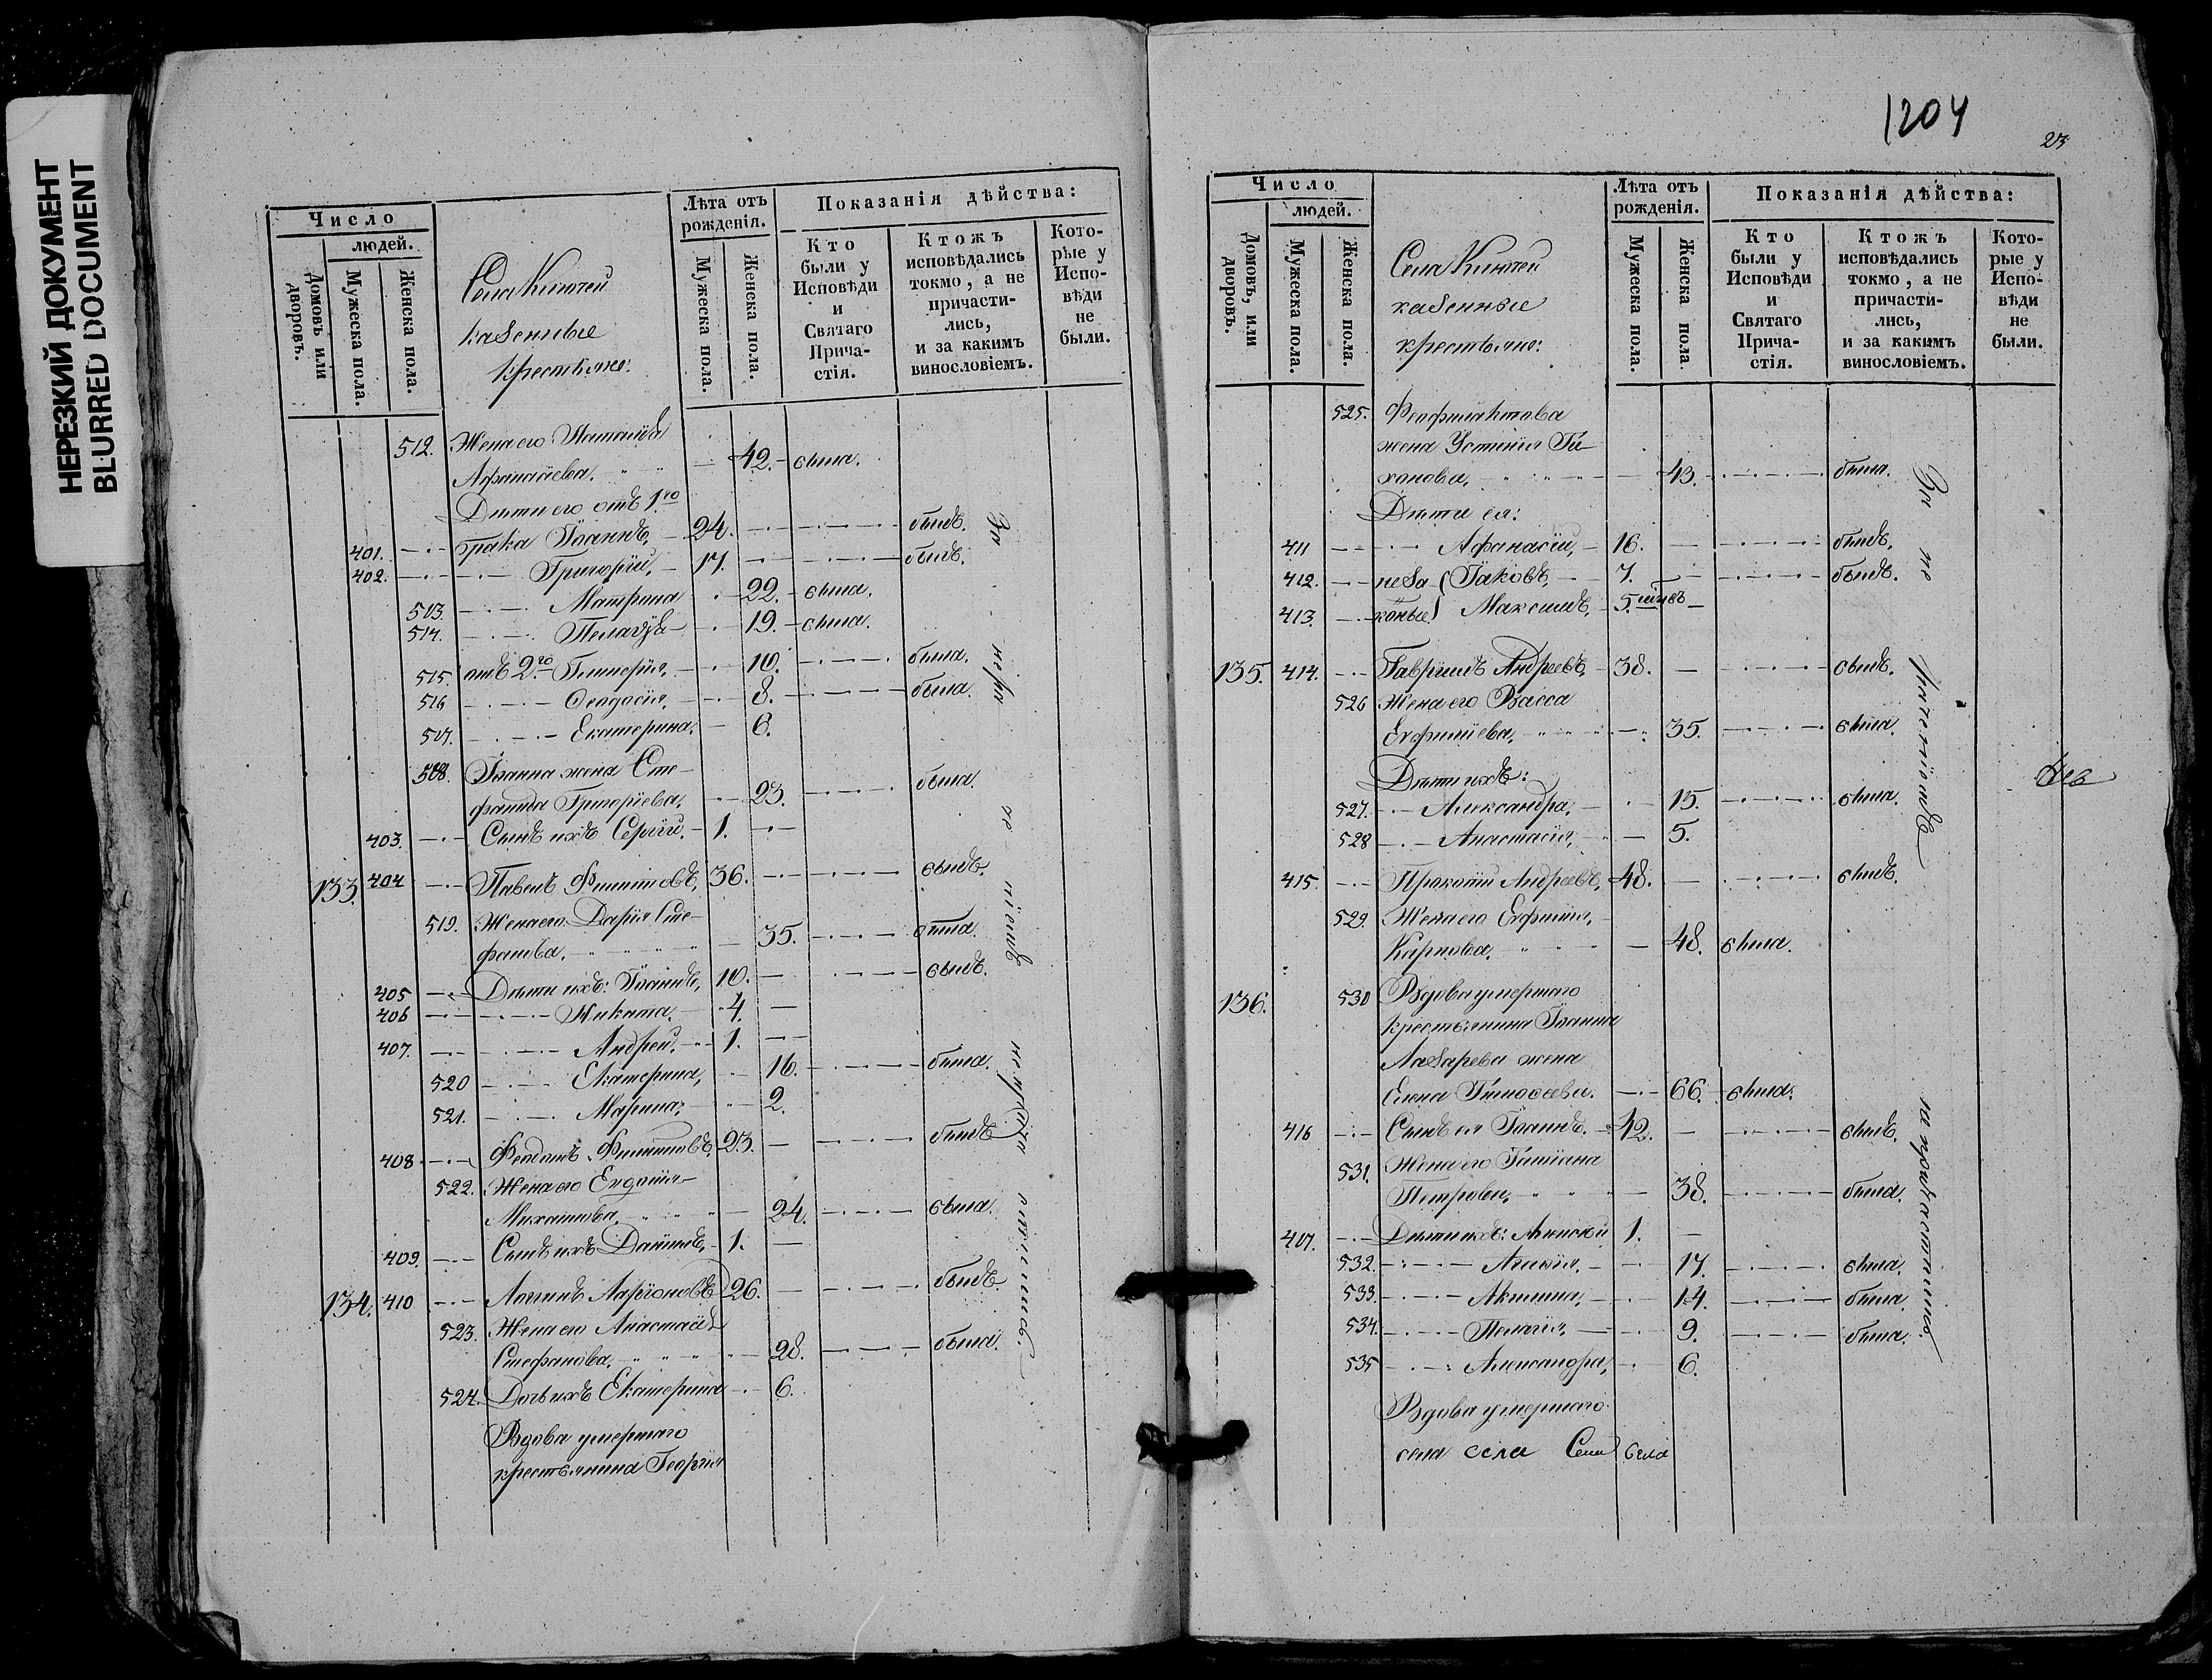 НЕРЕЗКИЙ ДОКУМЕНТ
BLURRED DOCUMENT
Число
людей.
Домовъ или дворовъ.
Мужеска пола.
Женска пола.
Села
казенные
крестьяне:
Лѣта отъ рожденія.
Мужеска пола.
Женска пола.
Показанія дѣйства:
Кто были у Исповѣди и Святаго Прича-стія.
Ктожъ исповѣдались токмо, а не причасти-лись, и за какимъ винословіемъ.
Кото-рые у Испо-вѣди не были.
512. Жена его Наталія
Афанасіева. 42. была.
Дѣти его отъ 1го
401. брака Іоаннъ, 24. былъ.
402. Григорій, 17. былъ.
513. Матрона 22. была.
514. Пелагія 19. была.
515. отъ 2го Гликерія, 10. была.
516 Феодосія, 8. была.
517. Екатерина, 6.
518. Іоанна жена Сте-
фанида Григоріева, 23. была.
403. Сынъ ихъ Сергій, 1.
133. 404 Павелъ Филиповъ, 36. былъ.
519. Жена его Дарія Сте-
фанова, 35. была.
405 Дѣти ихъ: Іоаннъ, 10. былъ.
406 Никита, 4.
407. Андрей, 1.
520 Екатерина, 16. была.
521. Марина, 2.
408. Феодотъ Филиповъ, 23. былъ
522. Жена его Евдокія
Михаилова, 24. была.
409. Сынъ ихъ Даніилъ, 1.
134. 410 Логинъ Ларіоновъ 26. былъ.
523. Жена его Анастасія
Стефанова, 28. была.
524. Дочь ихъ Екатерина 6.
Вдова умершаго
крестьянина Георгія
За
1204
23
Число
людей.
Домовъ, или дворовъ.
Мужеска пола.
Женска пола.
Села
казенные
крестьяне:
Лѣта отъ рожденія.
Мужеска пола.
Женска пола.
Показанія дѣйства:
Кто были у Исповѣди и Святаго Прича-стія.
Ктожъ исповѣдались токмо, а не причасти-лись, и за какимъ винословіемъ.
Кото-рые у Испо-вѣди не были.
525.
жена Устинія Ти-
хонова, 43. была.
Дѣти ея:
411 Афанасій, 16. былъ.
412. неза- Іаковъ, 7. былъ.
413. конные Максимъ, 5.
135. 414. Гавріилъ Андреевъ, 38. былъ.
526 Жена его Васса
Евфиміева, 35. была.
Дѣти ихъ:
527. Александра, 15. была.
528 Анастасія, 5.
415. Прокопій Андреевъ, 48. былъ.
529. Жена его Евфимія,
Карпова, 48. была.
136. 530 Вдова умершаго
крестьянина Іоанна
Лазарева жена
Елена Тимофеева. 66. была.
416 Сынъ ея Іоаннъ. 42. былъ.
531. Жена его Татіана
Петрова, 38. была.
417. Дѣти ихъ: Алексѣй 1.
532. 17. была.
533. Акилина, 14. была.
534. Пелагія, 9. была.
535 Александра, 6.
Вдова умершаго
села села Села села
За не